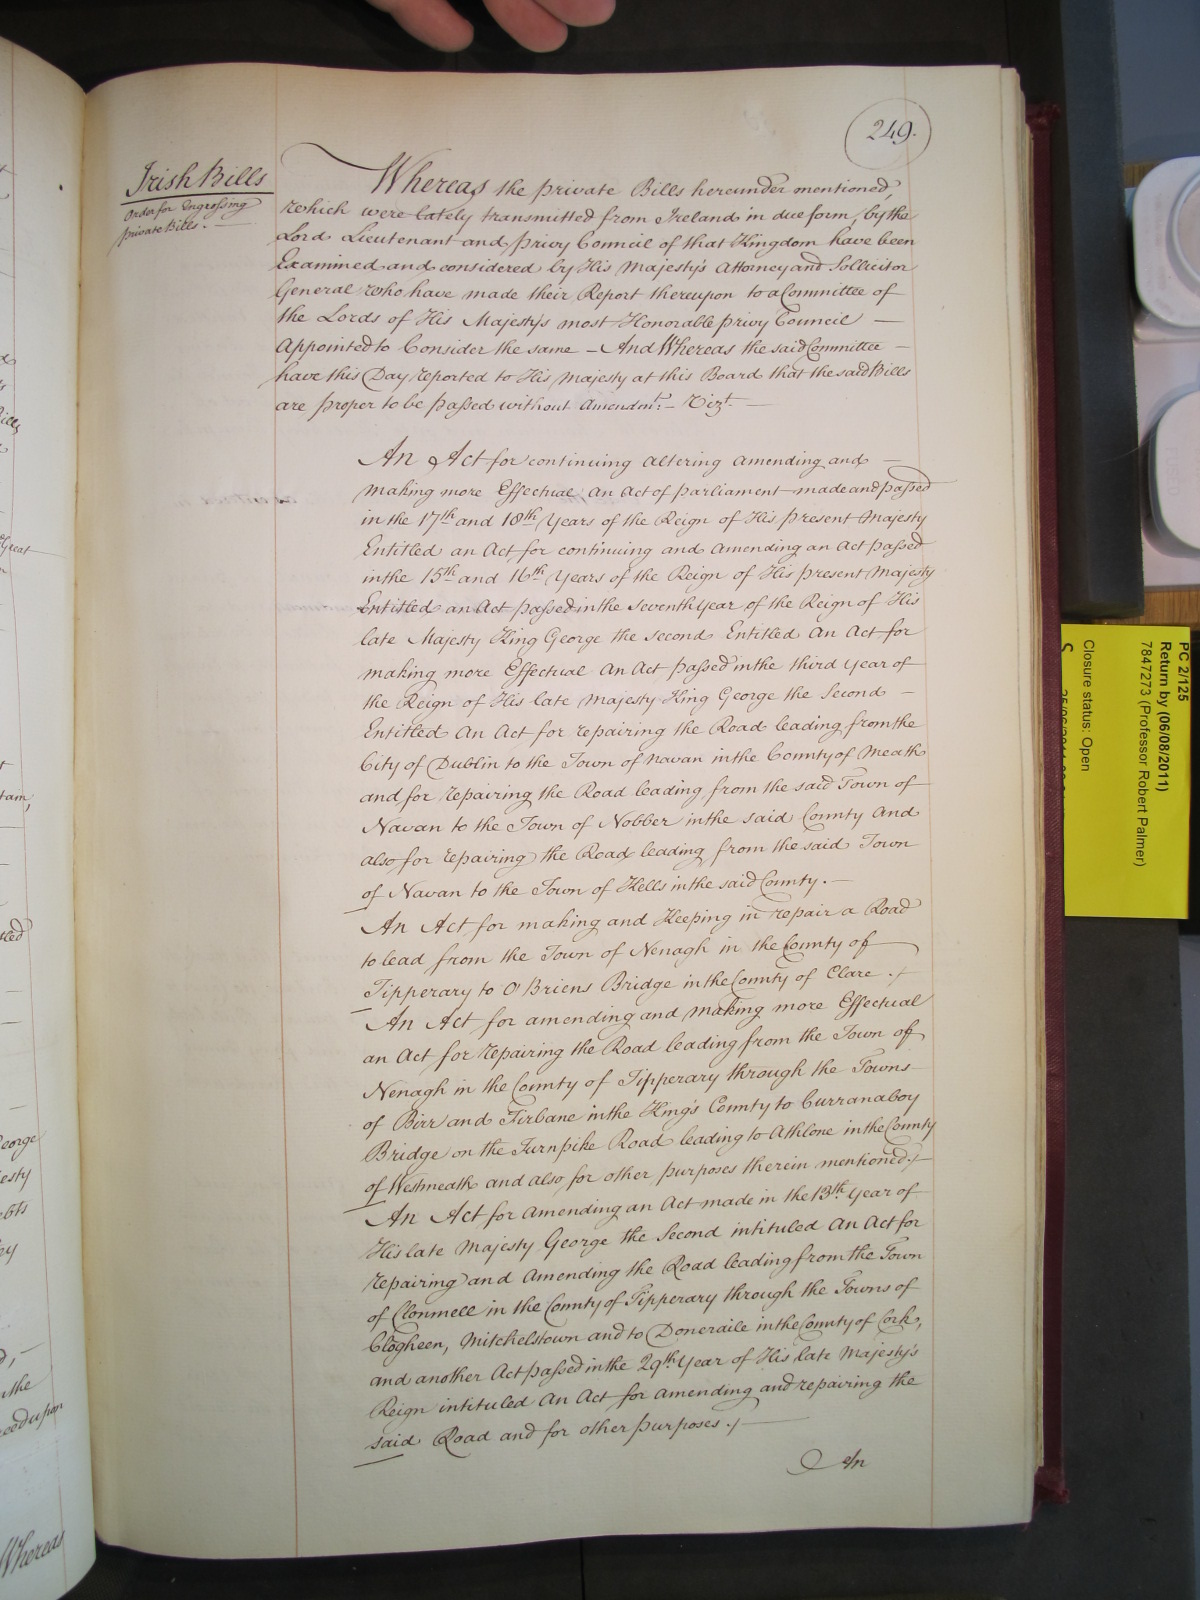 249.
Irish Bills
Order for Engrossing
private Bills.
Whereas the private Bills hereunder mentioned,
which were lately transmitted from Ireland in due form, by the
Lord Lieutenant and privy Council of that Kingdom have been
Examined and considered by His Majesty's Attorney and Sollicitor
General who have made their Report thereupon to a Committee of
the Lords of His Majesty's most Honorable privy Council —
Appointed to Consider the same — And Whereas the said Committee —
have this Day reported to His Majesty at this Board that the said Bills
are proper to be passed without Amendmts. — Vizt. —
An Act for continuing altering amending and —
making more Effectual an Act of parliament made and passed
in the 17th and 18th Years of the Reign of His present Majesty
Entitled an Act for continuing and amending an Act passed
in the 15th and 16th Years of the Reign of His present Majesty
Entitled an Act passed in the Seventh Year of the Reign of His
late Majesty King George the second Entitled An Act for
making more Effectual an Act passed in the third Year of
the Reign of His late Majesty King George the Second —
Entitled An Act for repairing the Road leading from the
City of Dublin to the Town of Navan in the County of Meath
and for repairing the Road leading from the said Town of
Navan to the Town of Nobber in the said County And
also for repairing the Road leading from the said Town
of Navan to the Town of Kells in the said County. —
An Act for making and Keeping in repair a Road
to lead from the Town of Nenagh in the County of
Tipperary to O'Briens Bridge in the County of Clare ./
An Act for amending and making more Effectual
an Act for repairing the Road leading from the Town of
Nenagh in the County of Tipperary through the Towns
of Birr and Firbane in the King's County to Curranaboy
Bridge on the Turnpike Road leading to Athlone in the County
of Westmeath and also for other purposes therein mentioned ./
An Act for amending an Act made in the 13th Year of
His late Majesty George the Second intituled An Act for
repairing and amending the Road leading from the Town
of Clonmell in the County of Tipperary through the Towns of
Clogheen, Mitchelstown and to Doneraile in the County of Cork,
and another Act passed in the 29th Year of His late Majesty's
Reign intituled An Act for amending and repairing the
said Road and for other purposes ./
An
Whereas
PC 2/125
Return by (06/08/2011)
7847273 (Professor Robert Palmer)
Closure status: Open